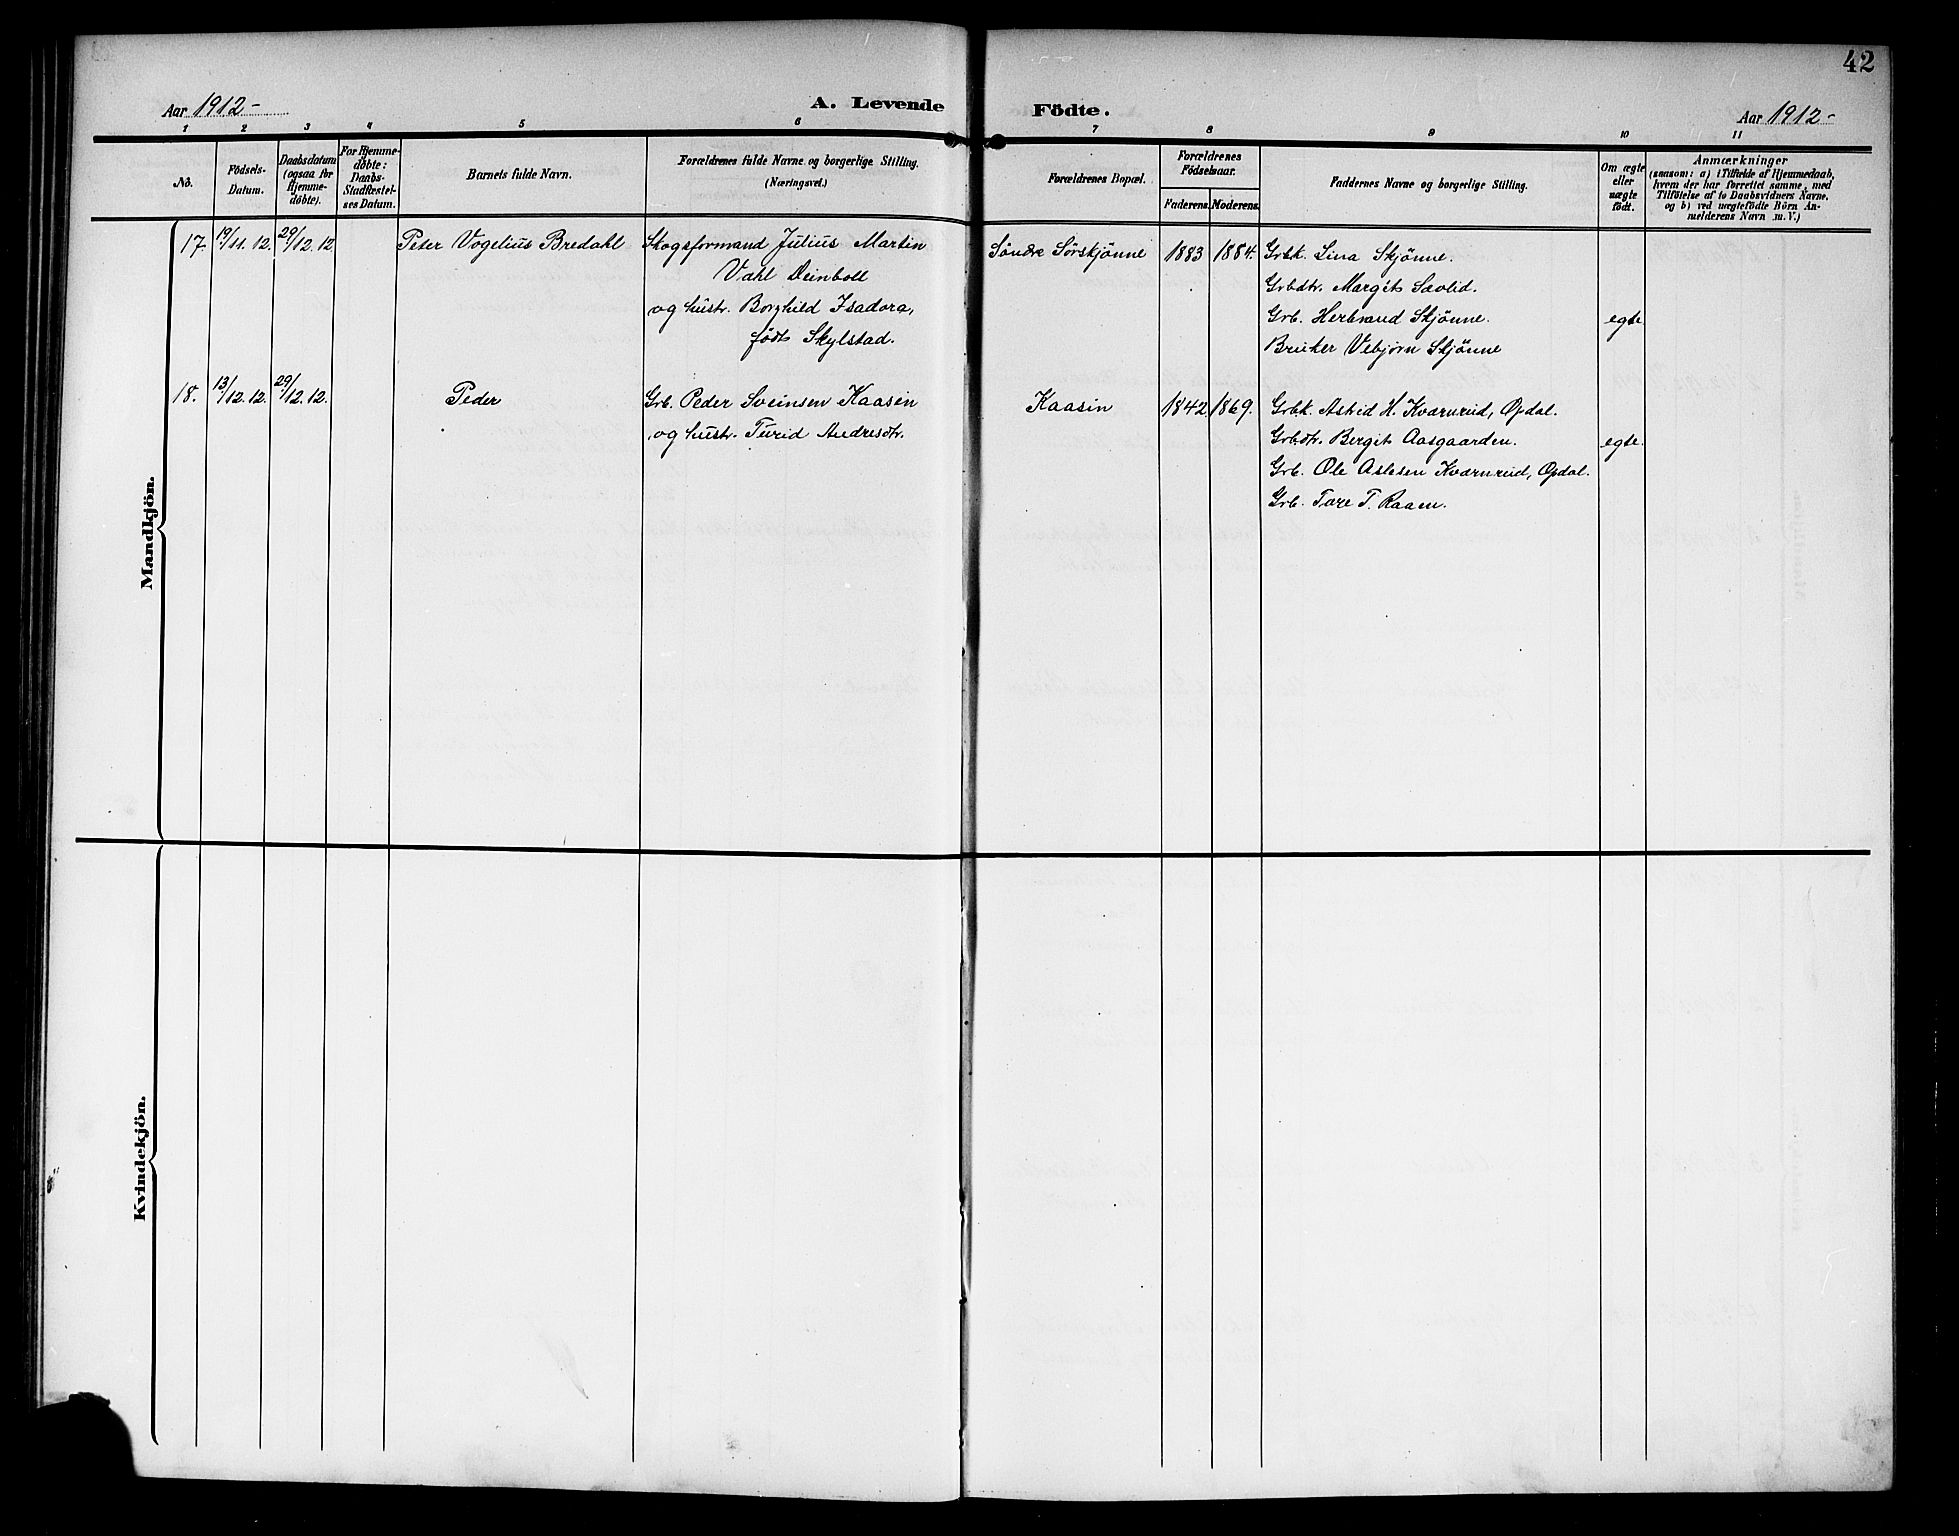 42
Aar 1912-
A. Levende
Födte.
Aar 1912-
1 2 3 4 5 6 7 8 9 10 11
No.
Födsels-
Datum.
Daabsdatum
(ogsaa for
Hjemme-
döbte).
For Hjemme-
döbte:
Daabs-
Stadfæstel-
ses Datum.
Barnets fulde Navn.
Forældrenes fulde Navne og borgerlige Stilling.
(Næringsvei.)
Forældrenes Bopæl.
Forældrenes
Födselsaar.
Faderens. Moderens.
Faddernes Navne og borgerlige Stilling.
Om ægte
eller
uægte
födt.
Anmærkninger
(saasom: a) i Tilfælde af Hjemmedaab,
hvem der har forrettet samme, med
Tilföielse af to Daabsvidners Navne,
og b) ved uægtefödte Börn An-
melderens Navn m. V.)
Mandkjön.
17. 19/11. 12. 29/12. 12 Peter Vogelius Bredahl Skogsformand Julius Martin Søndre Sørskjønne 1883 1884. Grbk. Lina Skjønne.
Vahl Deinboll Grbdtr. Margit Sævlid.
og hustr. Borghild Isadora, Grb. Herbrand Skjønne. egte
født Skylstad. Bruker Vebjørn Skjønne
18. 13/12. 12. 29/12. 12. Peder Grb. Peder Sveinsen Kaasen Kaasin 1842. 1869. Grbk. Astrid H. Kværnrud, Opdal.
og hustr. Turid Andresdtr. Grbdtr. Bergit Aasgaarden. egte.
Grb. Ole Aslesen Kværnrud, Opdal.
Grb. Tore T. Raaen.
Kvindekjön.